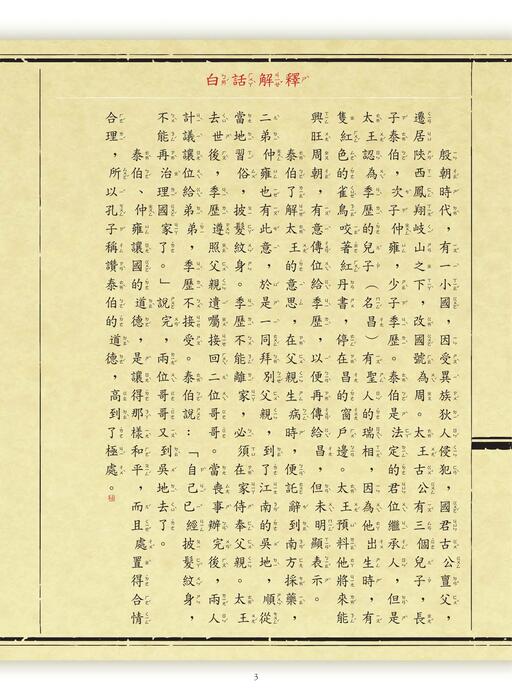 白話解釋
殷朝時代，有一小國，因受異族狄人侵犯，國君古公亶父，
遷居陝西鳳翔岐山之下，改國號為周。太王古公有三個兒子，長
子泰伯，次子仲雍，少子季歷。泰伯是法定的君位繼承人，但是
太王認為季歷的兒子（名昌）有聖人的瑞相，因為他出生時，有
隻紅色的雀鳥咬著丹書，停在昌的窗戶邊。太王預料他將來能
興旺周朝，有意傳位給季歷，以便再傳給昌，但未明顯表示。
泰伯了解太王的意思，在父親生病時，便託辭到南方採藥，
二弟仲雍也有此意。於是一同拜別父親，到了江南的吳地，順從
當地習俗，披髮紋身。季歷不能離家，必須在家侍奉父親。太王
去世後，季歷遵照父親遺囑接回二位哥哥。當喪事辦完後，兩人
計議讓位給弟弟，季歷不接受。泰伯說：「自己已經披髮紋身，
不能再治理國家了。」說完，兩位哥哥又到吳地去了。
泰伯、仲雍讓國的道德，是讓位得那樣和平，而且處置得合情
合理，所以孔子稱讚泰伯的道德，高到了極處。
3